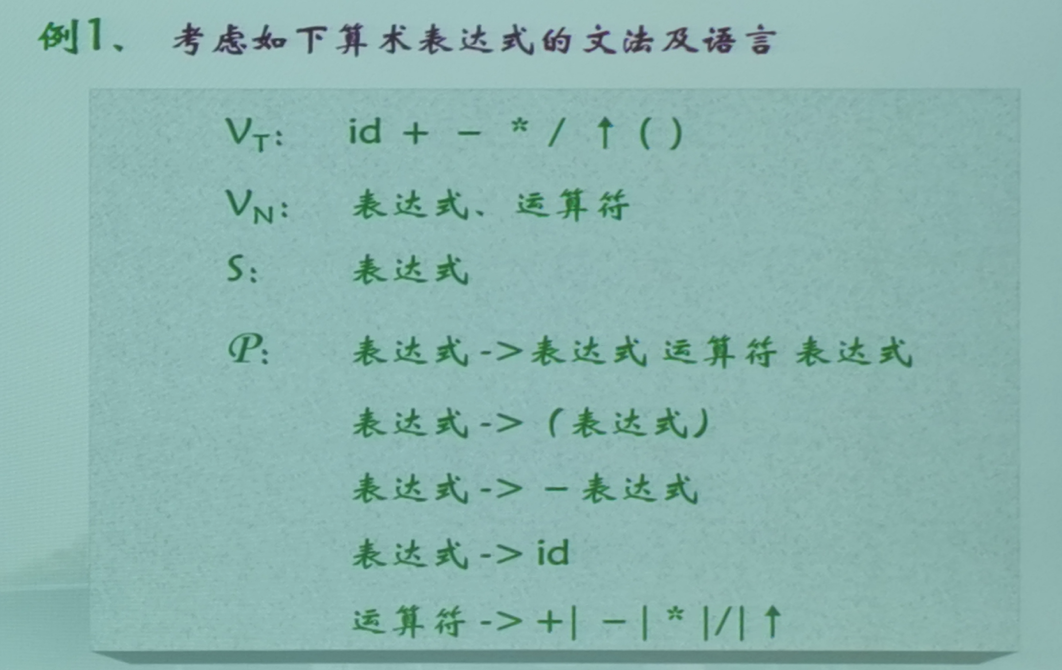 例1、 考虑如下算术表达式的文法及语言
VT: id + - * / ↑ ( )
VN: 表达式、运算符
S: 表达式
P: 表达式->表达式 运算符 表达式
表达式->（表达式）
表达式-> -表达式
表达式-> id
运算符-> +| - | * |/| ↑